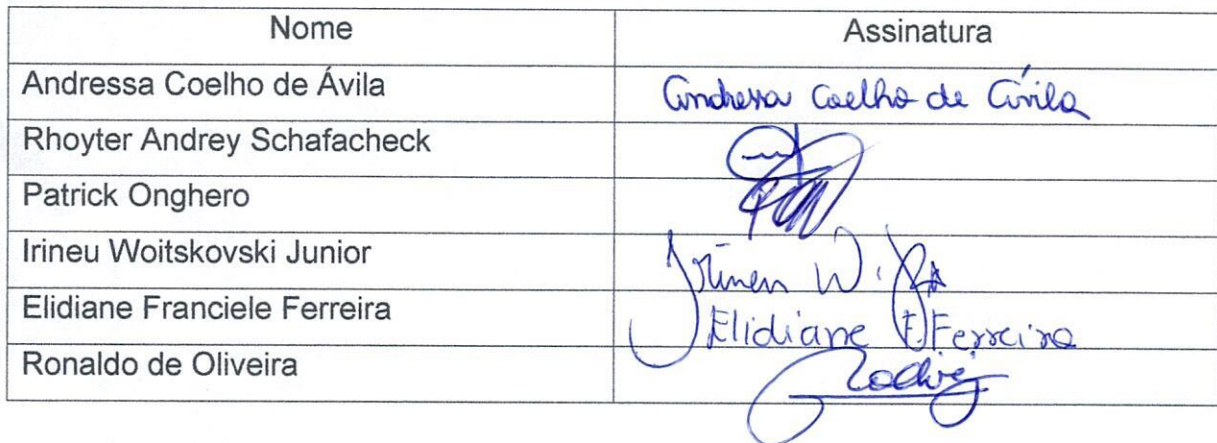 Nome Assinatura
Andressa Coelho de Ávila Andressa Coelho de Ávila
Rhoyter Andrey Schafacheck
Patrick Onghero
Irineu Woitskovski Junior Irineu W.
Elidiane Franciele Ferreira Elidiane F Ferreira
Ronaldo de Oliveira